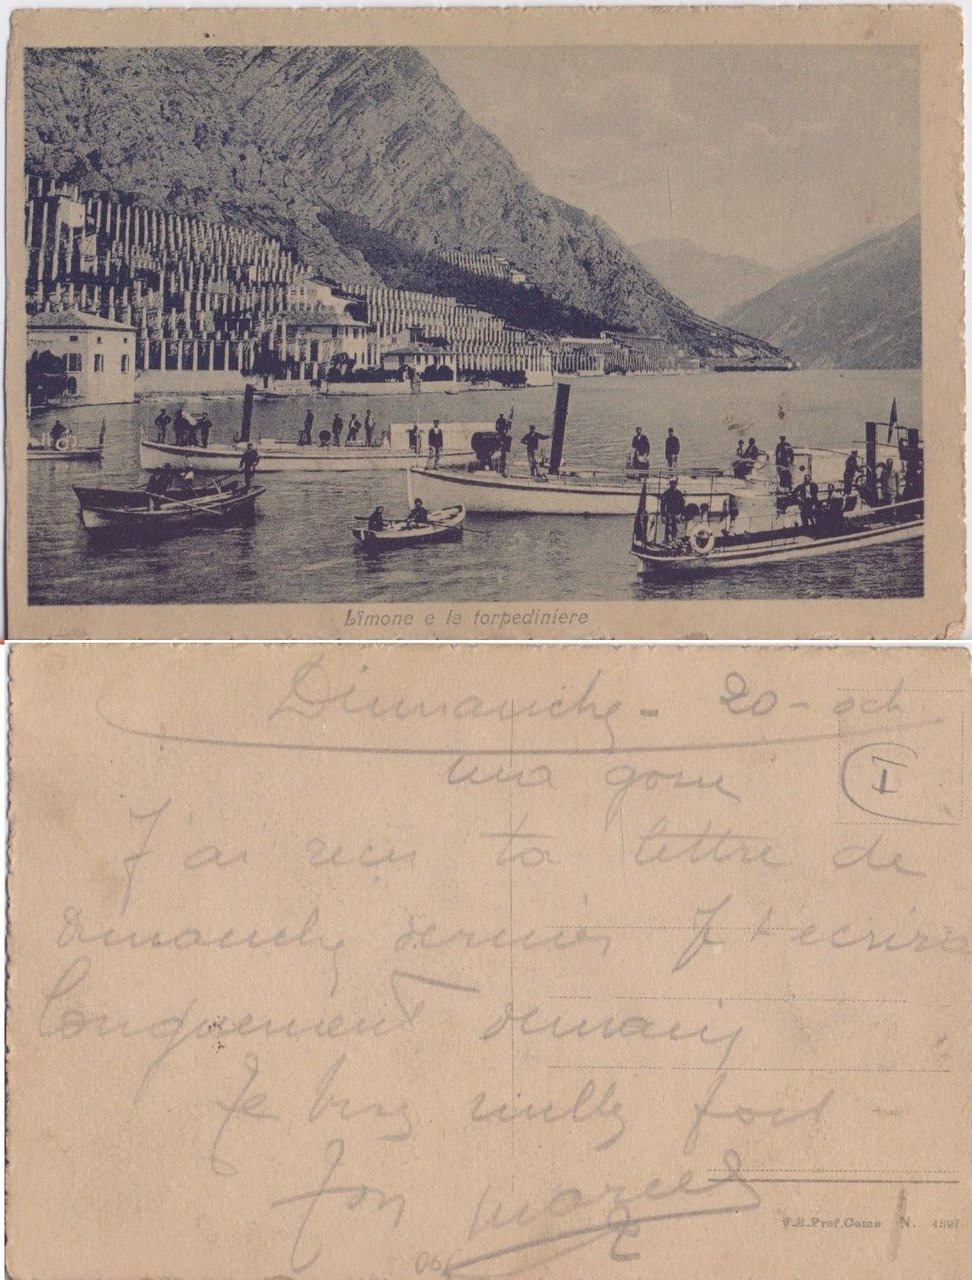 Limone e le torpediniere
Dimanche - 20 - oct
ma gosse
I
J'ai reçu ta lettre de
dimanche dernier Je t'écrirai
longuement demain
Je bise mille fois -
Ton Marcel
V.E.Prof.Como N. 4897